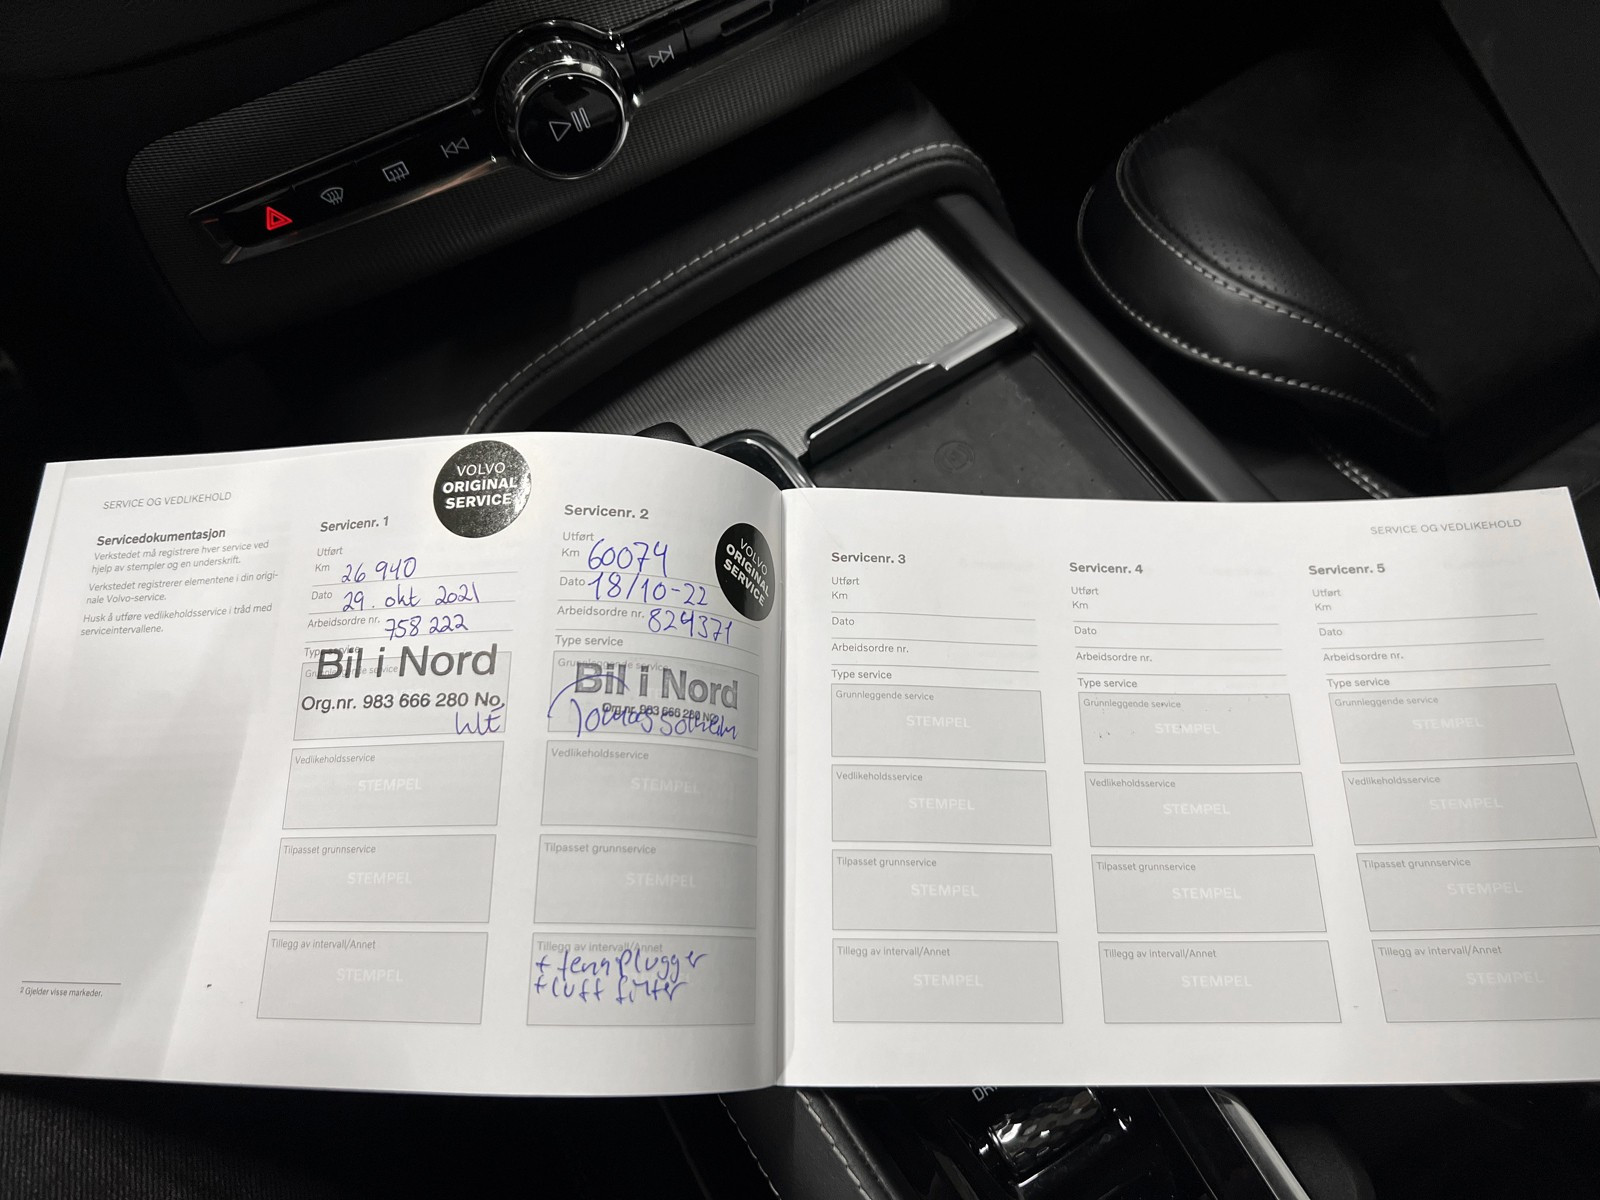 SERVICE OG VEDLIKEHOLD
Servicedokumentasjon
Verkstedet må registrere hver service ved
hjelp av stempler og en underskrift.
Verkstedet registrerer elementene i din origi-
nale Volvo-service.
Husk å utføre vedlikeholdsservice i tråd med
serviceintervallene.
2 Gjelder visse markeder.
VOLVO
ORIGINAL
SERVICE
Servicenr. 1
Utført
Km 26 940
Dato 29. okt 2021
Arbeidsordre nr. 758 222
Type service
Grunnleggende service
Bil i Nord
Org.nr. 983 666 280 No.
Vedlikeholdsservice
STEMPEL
Tilpasset grunnservice
STEMPEL
Tillegg av intervall/Annet
STEMPEL
VOLVO
ORIGINAL
SERVICE
Servicenr. 2
Utført
Km 60074
Dato 18/10-22
Arbeidsordre nr. 824371
Type service
Grunnleggende service
Bil i Nord
Org.nr. 983 666 280 No
Vedlikeholdsservice
STEMPEL
Tilpasset grunnservice
STEMPEL
Tillegg av intervall/Annet
+ tennplugger
+ luft filter
SERVICE OG VEDLIKEHOLD
Servicenr. 3
Utført
Km
Dato
Arbeidsordre nr.
Type service
Grunnleggende service
STEMPEL
Vedlikeholdsservice
STEMPEL
Tilpasset grunnservice
STEMPEL
Tillegg av intervall/Annet
STEMPEL
Servicenr. 4
Utført
Km
Dato
Arbeidsordre nr.
Type service
Grunnleggende service
STEMPEL
Vedlikeholdsservice
STEMPEL
Tilpasset grunnservice
STEMPEL
Tillegg av intervall/Annet
STEMPEL
Servicenr. 5
Utført
Km
Dato
Arbeidsordre nr.
Type service
Grunnleggende service
STEMPEL
Vedlikeholdsservice
STEMPEL
Tilpasset grunnservice
STEMPEL
Tillegg av intervall/Annet
STEMPEL